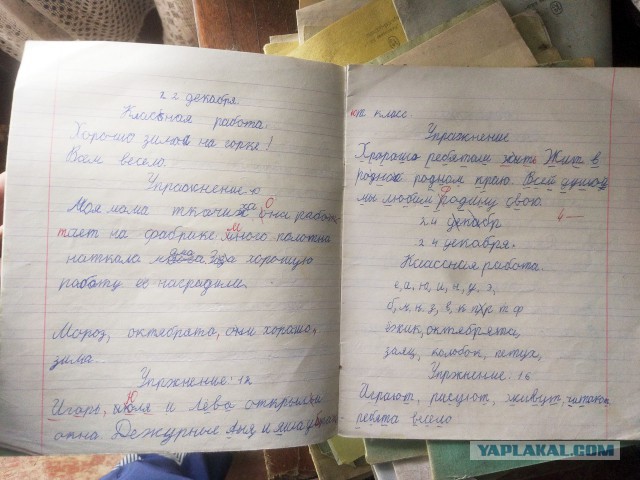 22 декабря.
Классная работа.
Хорошо зимой на горке!
Всем весело.
Упражнение
Моя мама ткачиха Она работ
тает на фабрике Много полотна
наткала за хорошую
работу её наградили.
Мороз, октябрята, они хорошо,
зима...
Упржнение: 12
Игорь, Юля и Лёва открыли
окна Дежурные Аня и
кт класс
Упражнение
Хрорашо ребятам жить Жит в
родном краю. Всей
мы любим Родину свою
4-
24 декабр
24 декабря.
Классная работа.
е, а, ю, и,
б, л,
ёжик, октябрята,
заяц, колобок, петух,
Упржнение: 16
Играют, рисуют, живут, читают
ребята весело
YAPLAKAL.COM